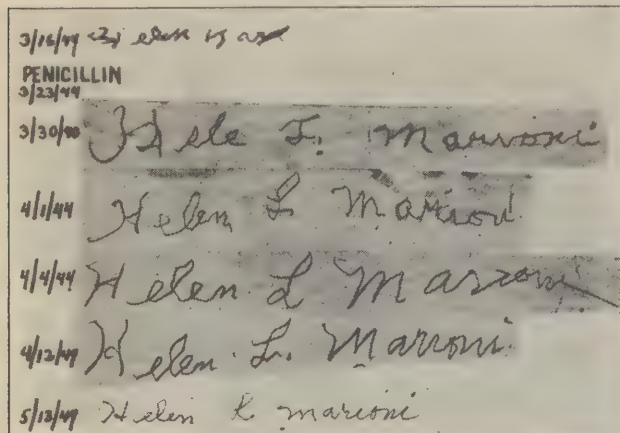 3/16/44 elen
PENICILLIN
3/23/44
3/30/44 Hele L. Marioni
4/1/44 Helen L Marioni
4/4/44 Helen L Marioni
4/12/44 Helen L. Marioni
5/13/44 Helen L marioni